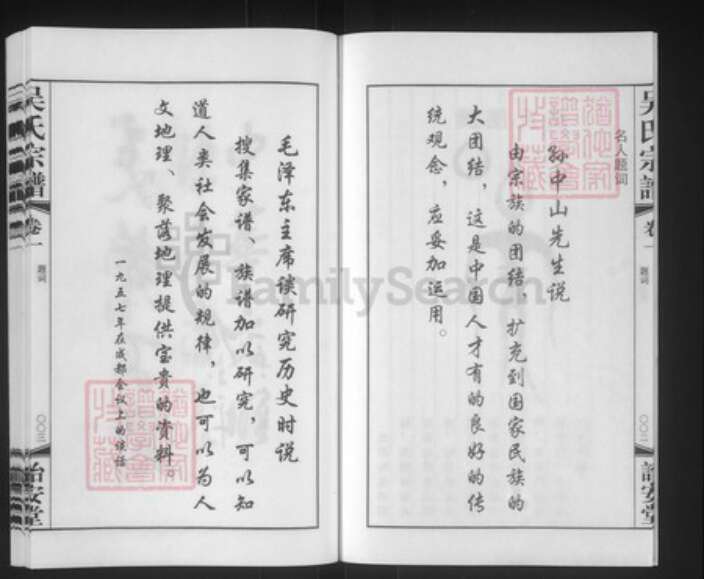 吴氏宗谱
卷一
题词
〇〇二
诒安堂
名人题词
孙中山先生说
由宗族的团结，扩充到国家民族的
大团结，这是中国人才有的良好的传
统观念，应妥加运用。
毛泽东主席谈研究历史时说
搜集家谱、族谱加以研究，可以知
道人类社会发展的规律，也可以为人
文地理、聚落地理提供宝贵的资料。
一九五七年在成都会议上的谈话
吴氏宗谱
卷一
题词
〇〇三
诒安堂
FamilySearch